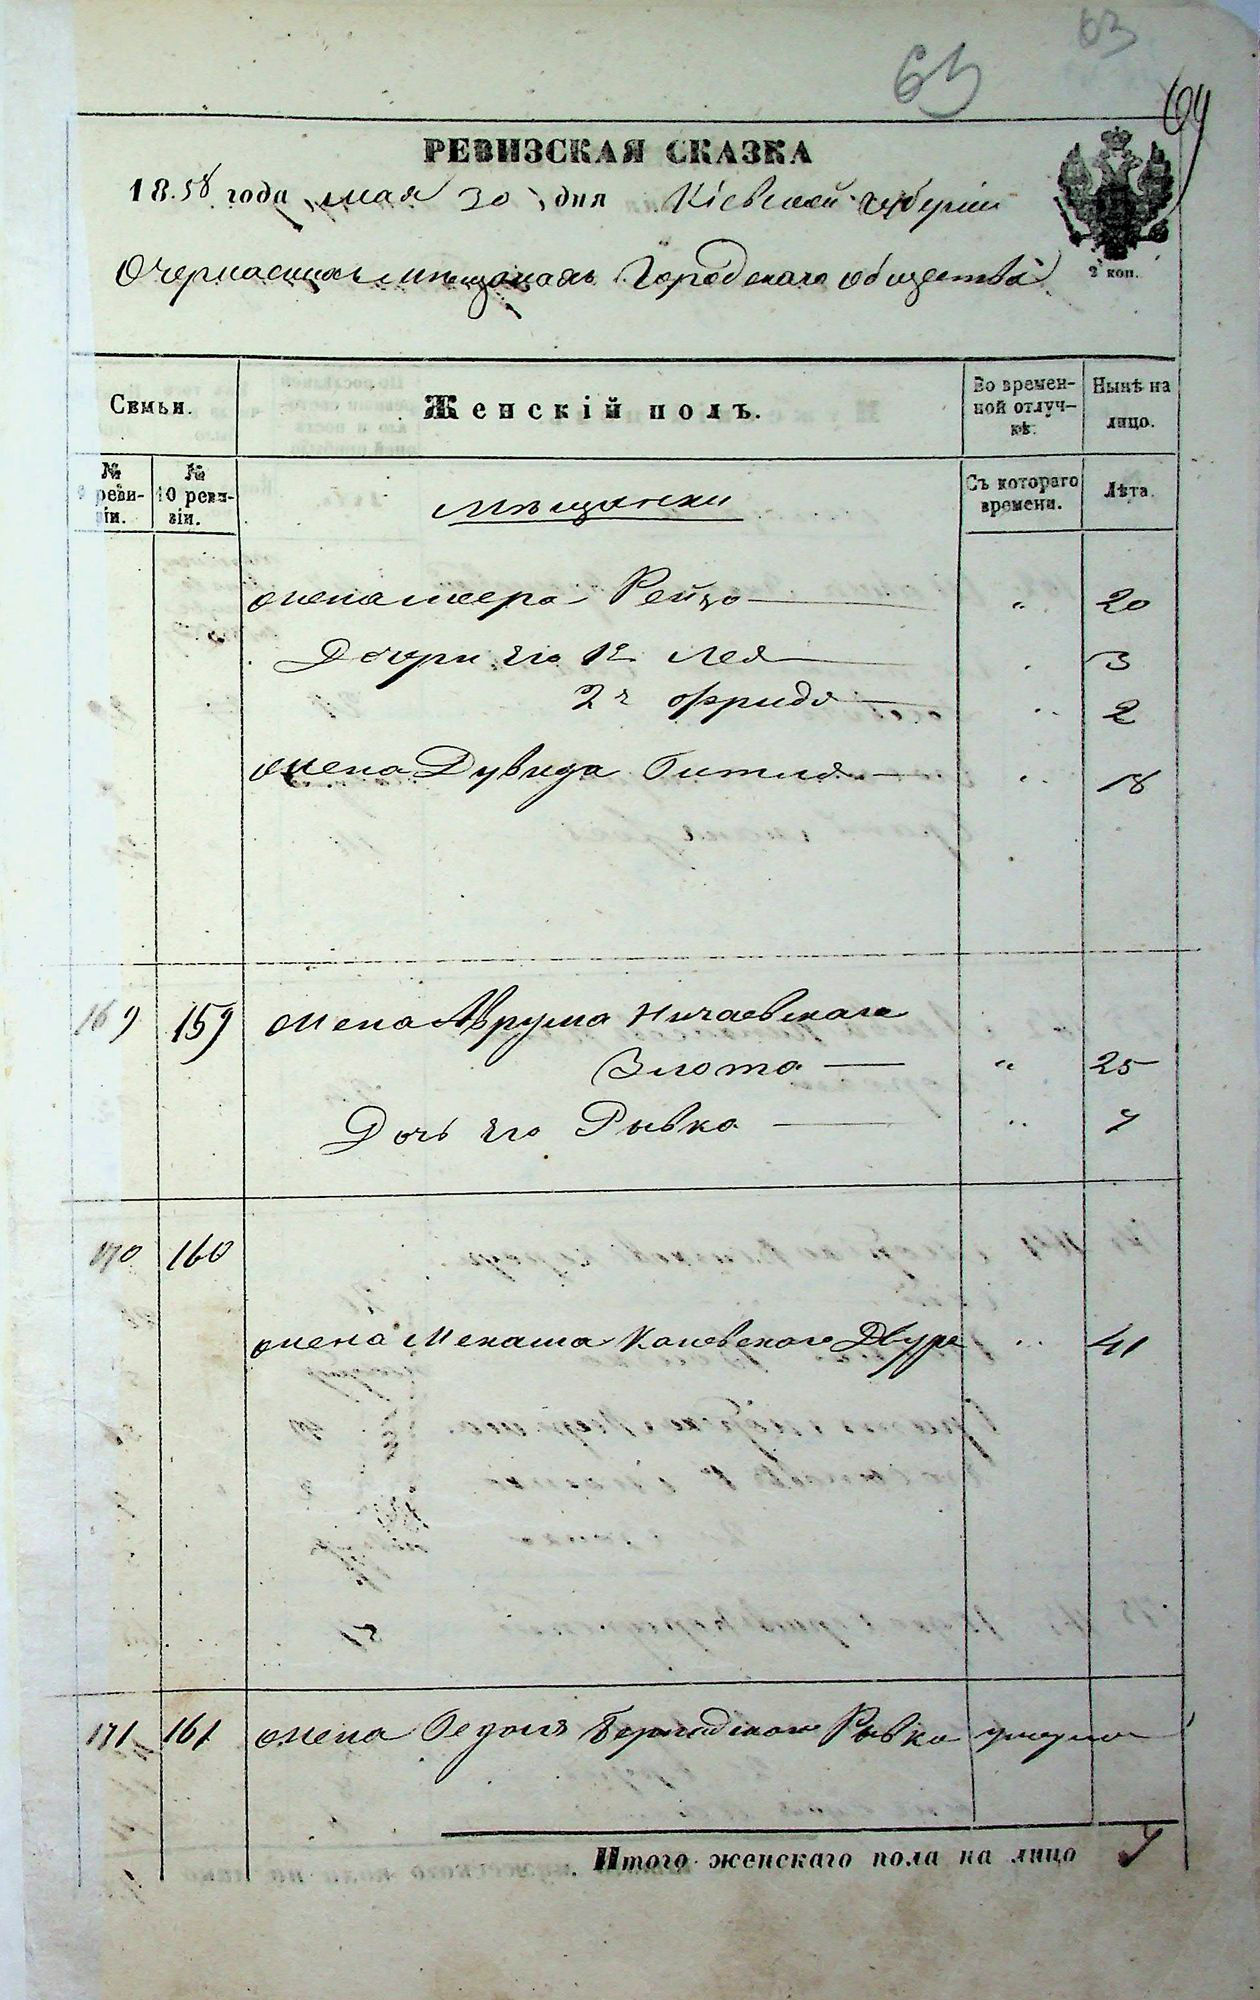 63
63
64
РЕВИЗСКАЯ СКАЗКА
18.58 года мая 30 дня Кіевской губерніи
2 коп.
О черкасскихъ мѣщанахъ Городскаго общества
Семьи.
Женскій полъ.
Во временной отлучкѣ.
Ныне на лицо.
№ 9 ревизіи.
№ 10 ревизіи.
мѣщанки
Съ котораго времени.
Лѣта.
жена Меера Рейза — " 20
Дочери его 1я Лея — " 3
2я Фрида — " 2
жена Дувида Битля — " 18
169 159 жена Аврума Ничаевскаго
Злота — " 25
Дочь его Рывка — " 7
170 160
жена Менаша Каневскаго Двура " 41
171 161 жена Рывка умерла
Итого женскаго пола на лицо 7